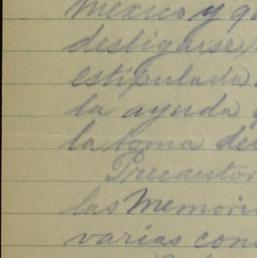 Mexico y q
desligarse
estipulada.
la ayuda
la toma de
Precautor
las Memori
varias con